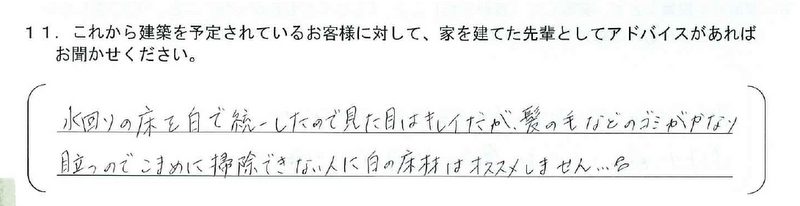 11. これから建築を予定されているお客様に対して、家を建てた先輩としてアドバイスがあれば
お聞かせください。
水回りの床を白で統一したので見た目はキレイだが、髪の毛などのゴミがかなり
目立つのでこまめに掃除できない人に白の床材はオススメしません...